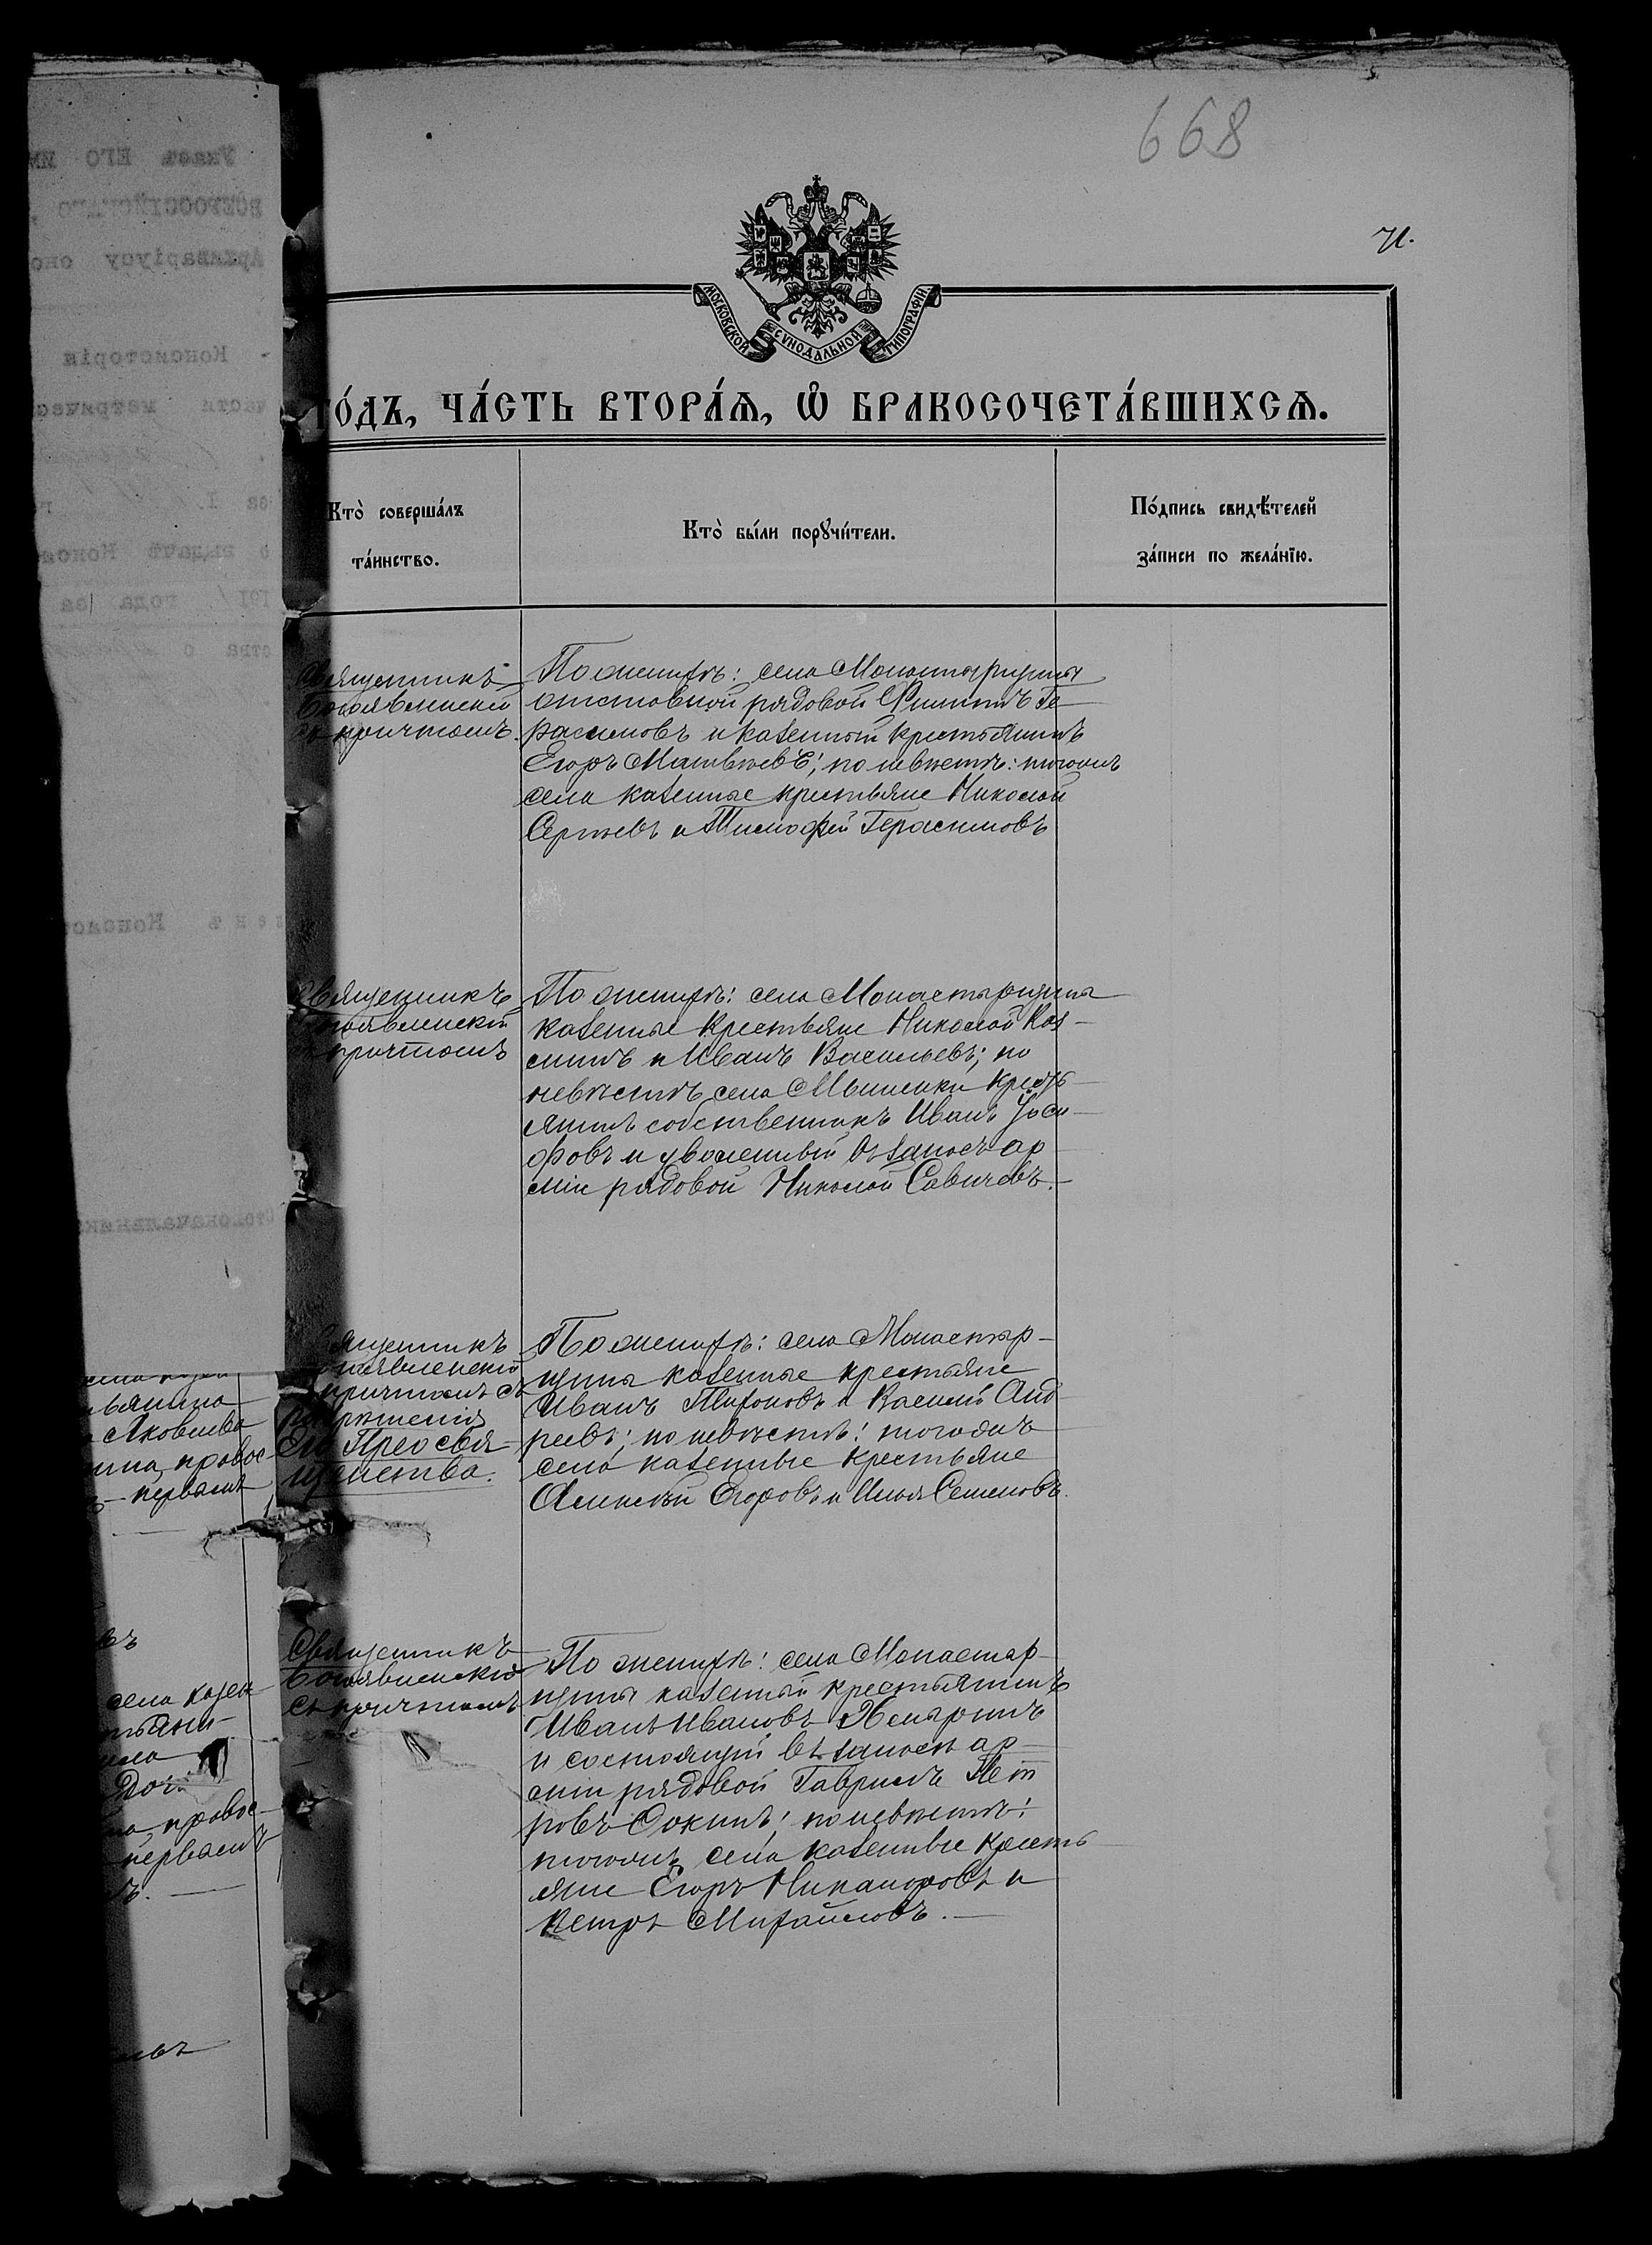 668
71.
МОСКОВСКОЙ СѴНОДАЛЬНОЙ ТИПОГРАФІИ.
го́дъ, ча́сть втора́ѧ, ѡ҆ бракосочета́вшихсѧ.
Кто̀ соверша́лъ
та́инство.
Кто̀ бы́ли порꙋчи́тели.
По́дпись свидѣ́телей
за́писи по жела́нїю.
Священникъ
Богоявленскій
съ причтомъ.
По женихѣ: села Монастырщины
отставной рядовой Филиппъ Ге-
расимовъ и казенный крестьянинъ
Егоръ Матвѣевъ; по невѣстѣ: тогожъ
села казенные крестьяне Николай
Сергѣевъ и Тимофей Герасимовъ
Священникъ
Богоявленскій
съ причтомъ
По женихѣ: села Монастырщина
казенные крестьяне Николай Коз-
минъ и Иванъ Васильевъ; по
невѣстѣ села крест-
янинъ собственникъ Иванъ Іоси-
фовъ и уволенный въ запасъ ар
міи рядовой Николай Савичевъ.-
Священникъ
Богоявленскій
съ причтомъ съ
разрѣшенія
Его Преосвя-
щенства.
По женихѣ: села Монастыр-
щины казенные крестьяне
Иванъ Тихоновъ и Василій Анд
реевъ; по невѣстѣ: тогожъ
села казенные крестьяне
Алексѣй Егоровъ и Илья Семеновъ.
Священникъ
Богоявленскій
съ причтомъ
По женихѣ: села Монастыр-
щины казенный крестьянинъ
Иванъ Ивановъ
и состоящій въ запасѣ ар-
міи рядовой Гавріилъ Пет
ровъ Сокинъ; по невѣстѣ:
тогожъ села казенные кресть
яне Егоръ Никаноровъ и
Петръ Михайловъ.-
Указъ ЕГО ИМ
ВСЕРОССІЙСКАГО
Архиваріусу
Консисторія
части метричес
о выдачѣ Конси
191 года за
ства о
Столоначальник
Яковлева
права
первымъ
села казен
Дочь
права
первымъ